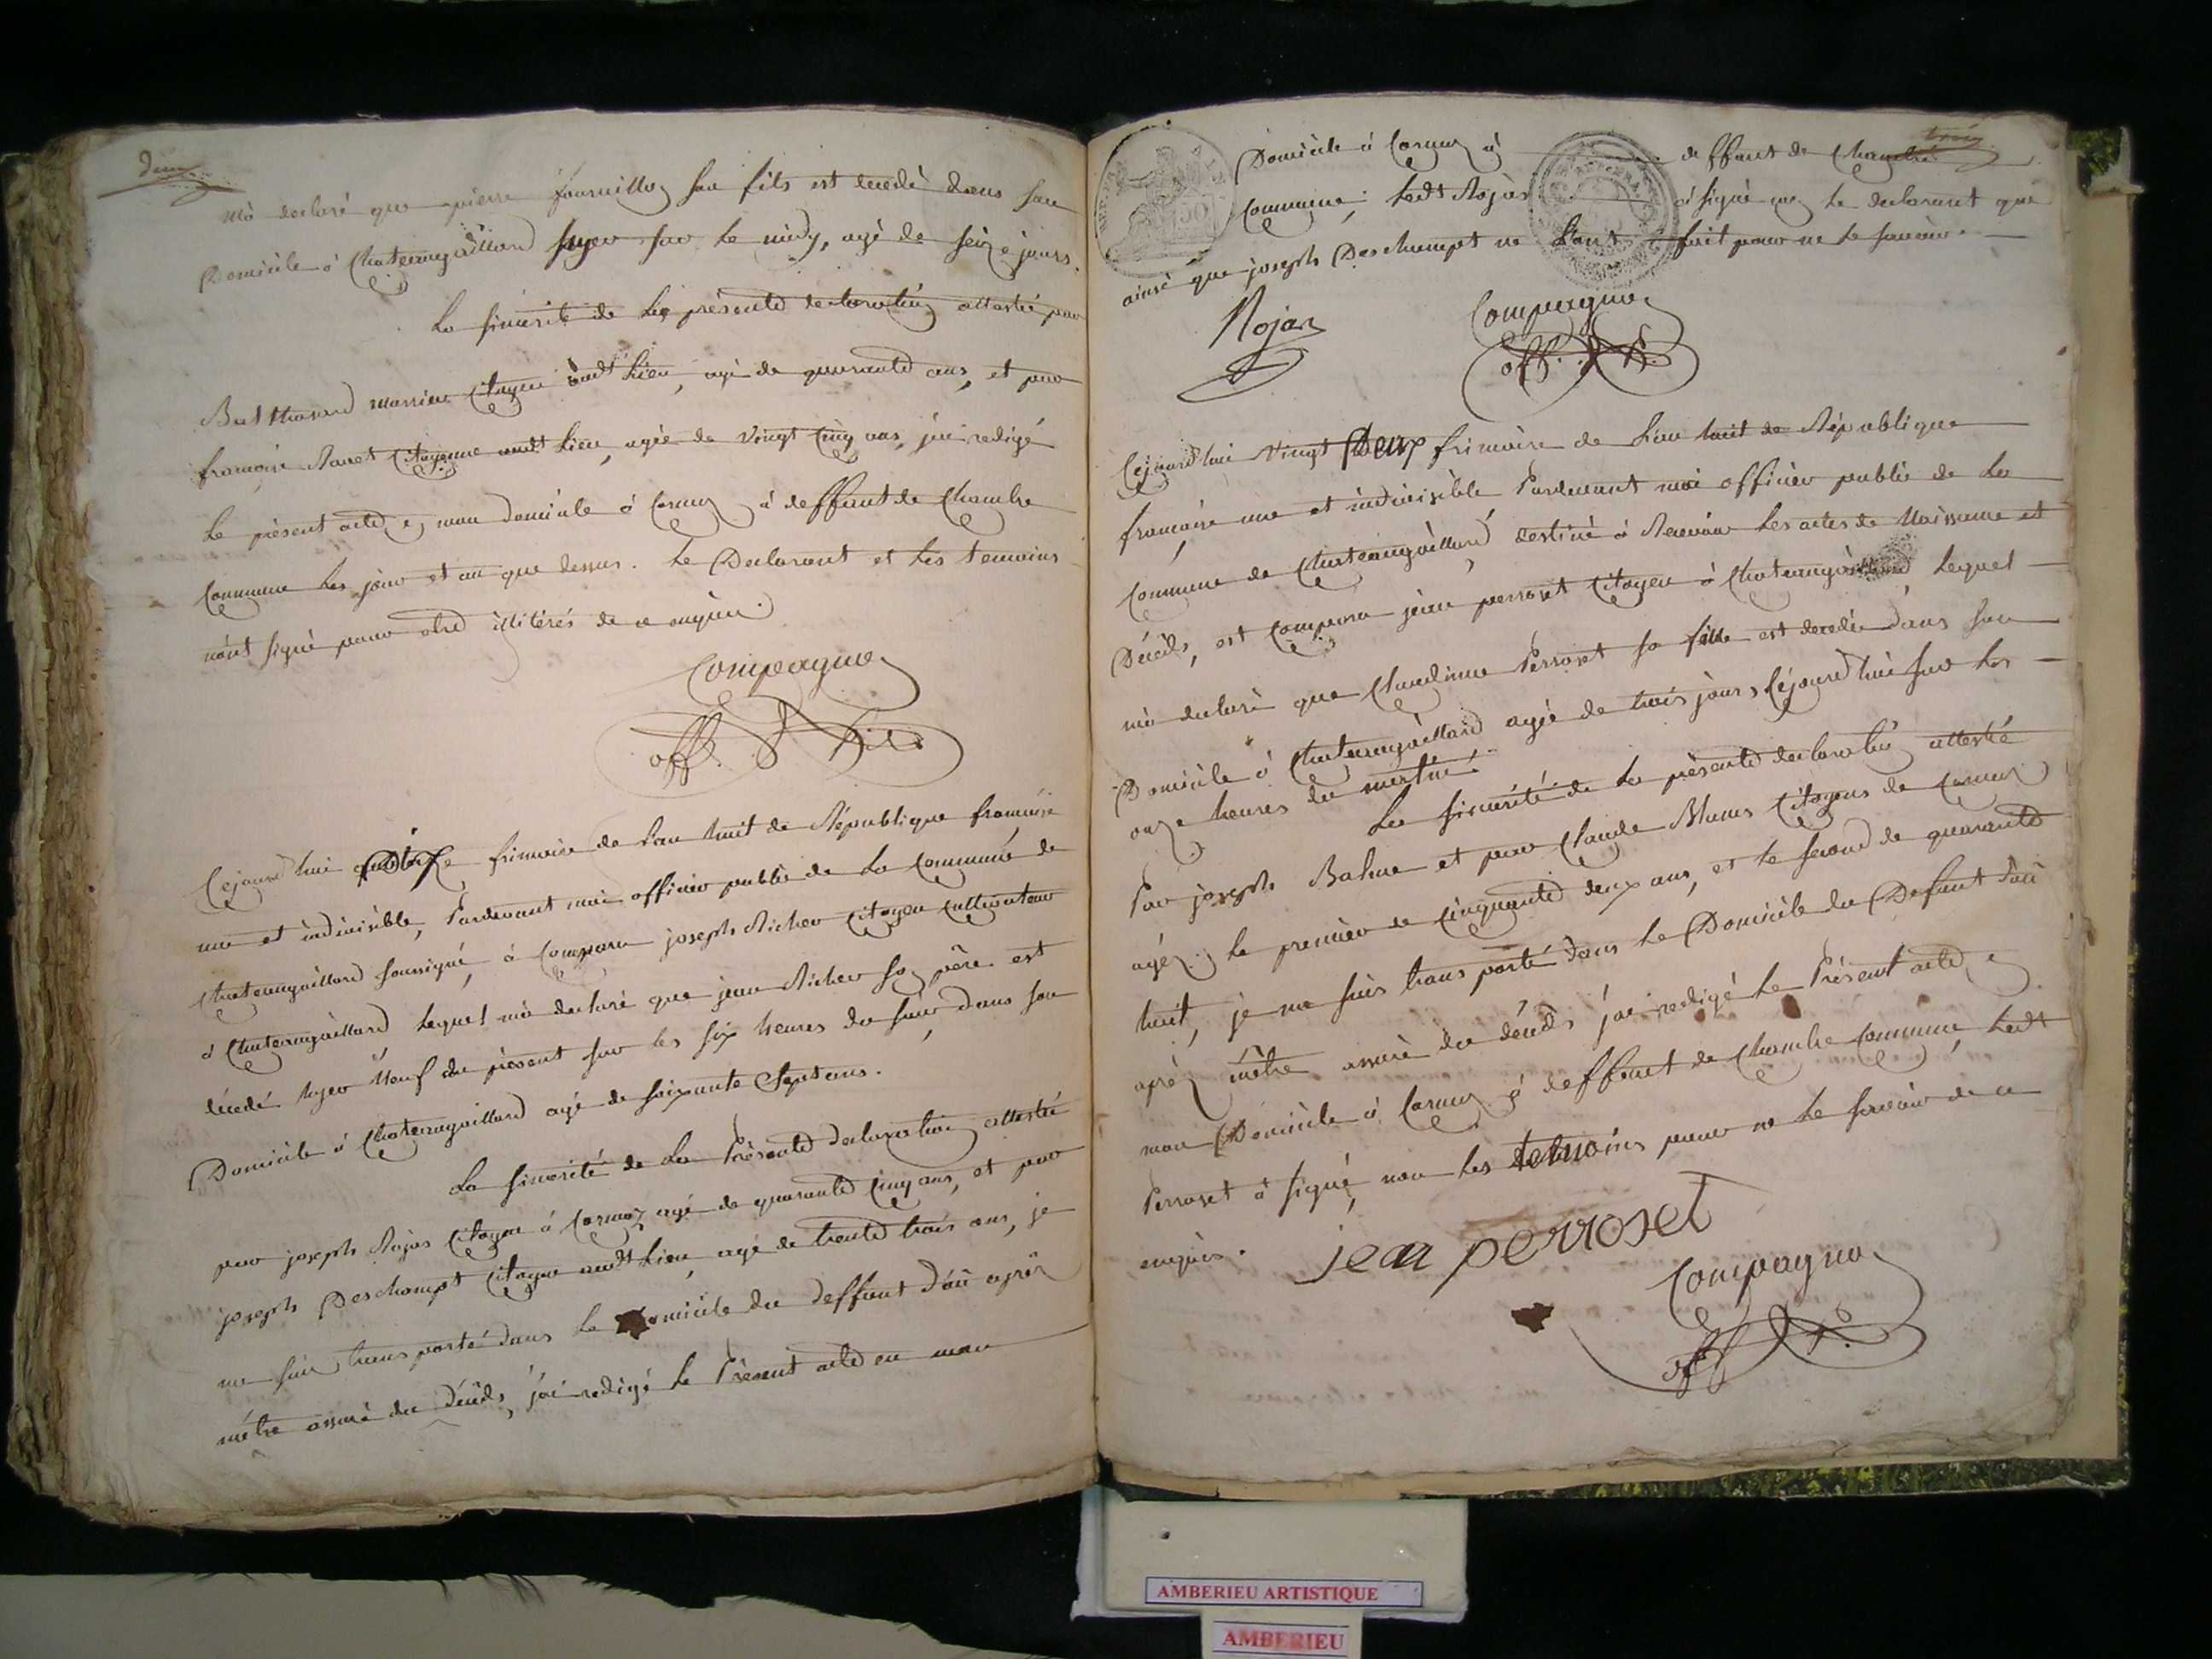 deux
m'à declaré que pierre fournillon son fils est decedè dans son
Domicile à Chateaugaillard hyer sur le midy, agé de seize jours.
La sincerité de la présente declaration attestée par
Balthazard marrion Citoyen audt Lieu, agé de quarante ans, et par
francoise Ravet Citoyenne audt Lieu, agée de vingt Cinq ans, j'ai redigé
le présent acte en mon domicile à Cormoz à deffaut de Chambre
Commune les jour et an que dessus. Le Declarant et les temoins
n'ont signé pour etre illiterés de ce enquis.
Compagnon
off. P
Cejourd'hui frimaire de l'an huit de République francaise
une et indivisible, Pardevant moi officier public de la Commune de
Chateaugaillard soussigné, à Comparu joseph Richer Citoyen Cultivateur
à Chateaugaillard, lequel m'à declaré que jean Richer son père est
décedé hyer Neuf du présent sur les six heures du soir, dans son
Domicile à Chateaugaillard agé de soixante Sept ans.
La sincerité de La Présente declaration attestée
par joseph Rojas Citoyen à Cormoz agé de quarante Cinq ans, et par
joseph Deschampt Citoyen audt Lieu, agé de trente trois ans, je
me suis trans porté dans le Domicile du deffunt d'où après
m'être assuré du décèds, j'ai redigé le Présent acte en mon
trois
Domicile à Cormoz à deffaut de Chambre
Commune; Ledt Rojas à signé non le declarant que
ainsi que joseph Deschampt ne l'ont fait pour ne le savoir.
Rojas
Compagnon
off. P.
Cejourd'hui vingt Deux frimaire de l'an huit de République
francaise une et indivisible, Pardevant moi officier public de la
Commune de Chateaugaillard, destiné à Recevoir les actes de Naissance et
Décèds, est Comparu jean perroset Citoyen à Chateaugaillard, lequel
m'à declaré que Claudinne Perroset sa fille est decedée dans son
Domicile à Chateaugaillard agée de trois jours, Cejourd'hui sur les
onze heures du matin.
La sincérité de La présente declaration attestée
Par joseph Balme et par Claude Citoyens de Cormoz
agés, le premier de Cinquante deux ans, et le second de quarante
huit, je me suis trans porté dans le Domicile du Defunt d'où
après m'être assuré du décèds j'ai redigé le Présent acte en
mon Domicile à Cormoz à deffaut de Chambre Commune, Ledt
Perroset à signé, non les temoins pour ne le savoir de ce
enquis.
jean perroset
Compagnon
off. P.
AMBERIEU ARTISTIQUE
AMBERIEU